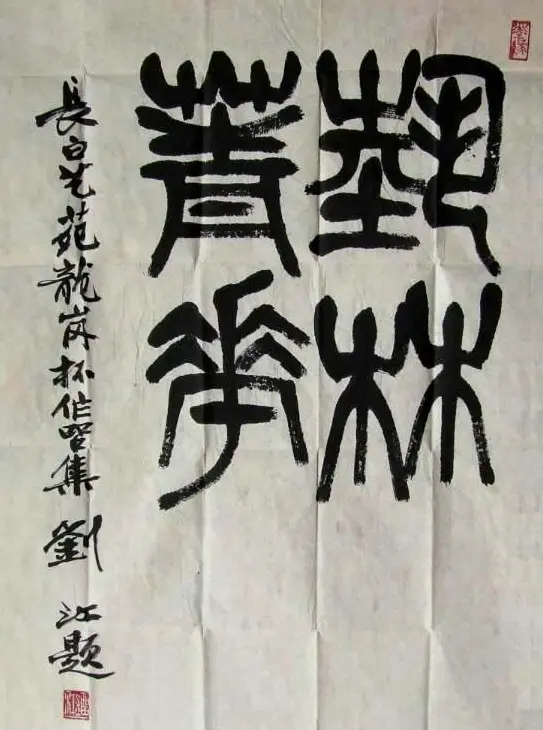 藝林
菁華
長白艺苑龍岗杯作品集 劉江题